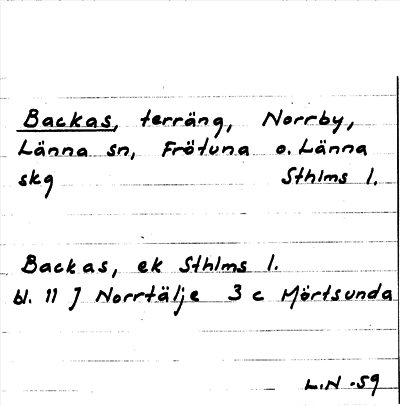 Backas, terräng, Norrby,
Länna sn, Frötuna o. Länna
skg Sthlms l.
Backas, ek Sthlms l.
bl. 11 J Norrtälje 3 c Mörtsunda
L.N -59